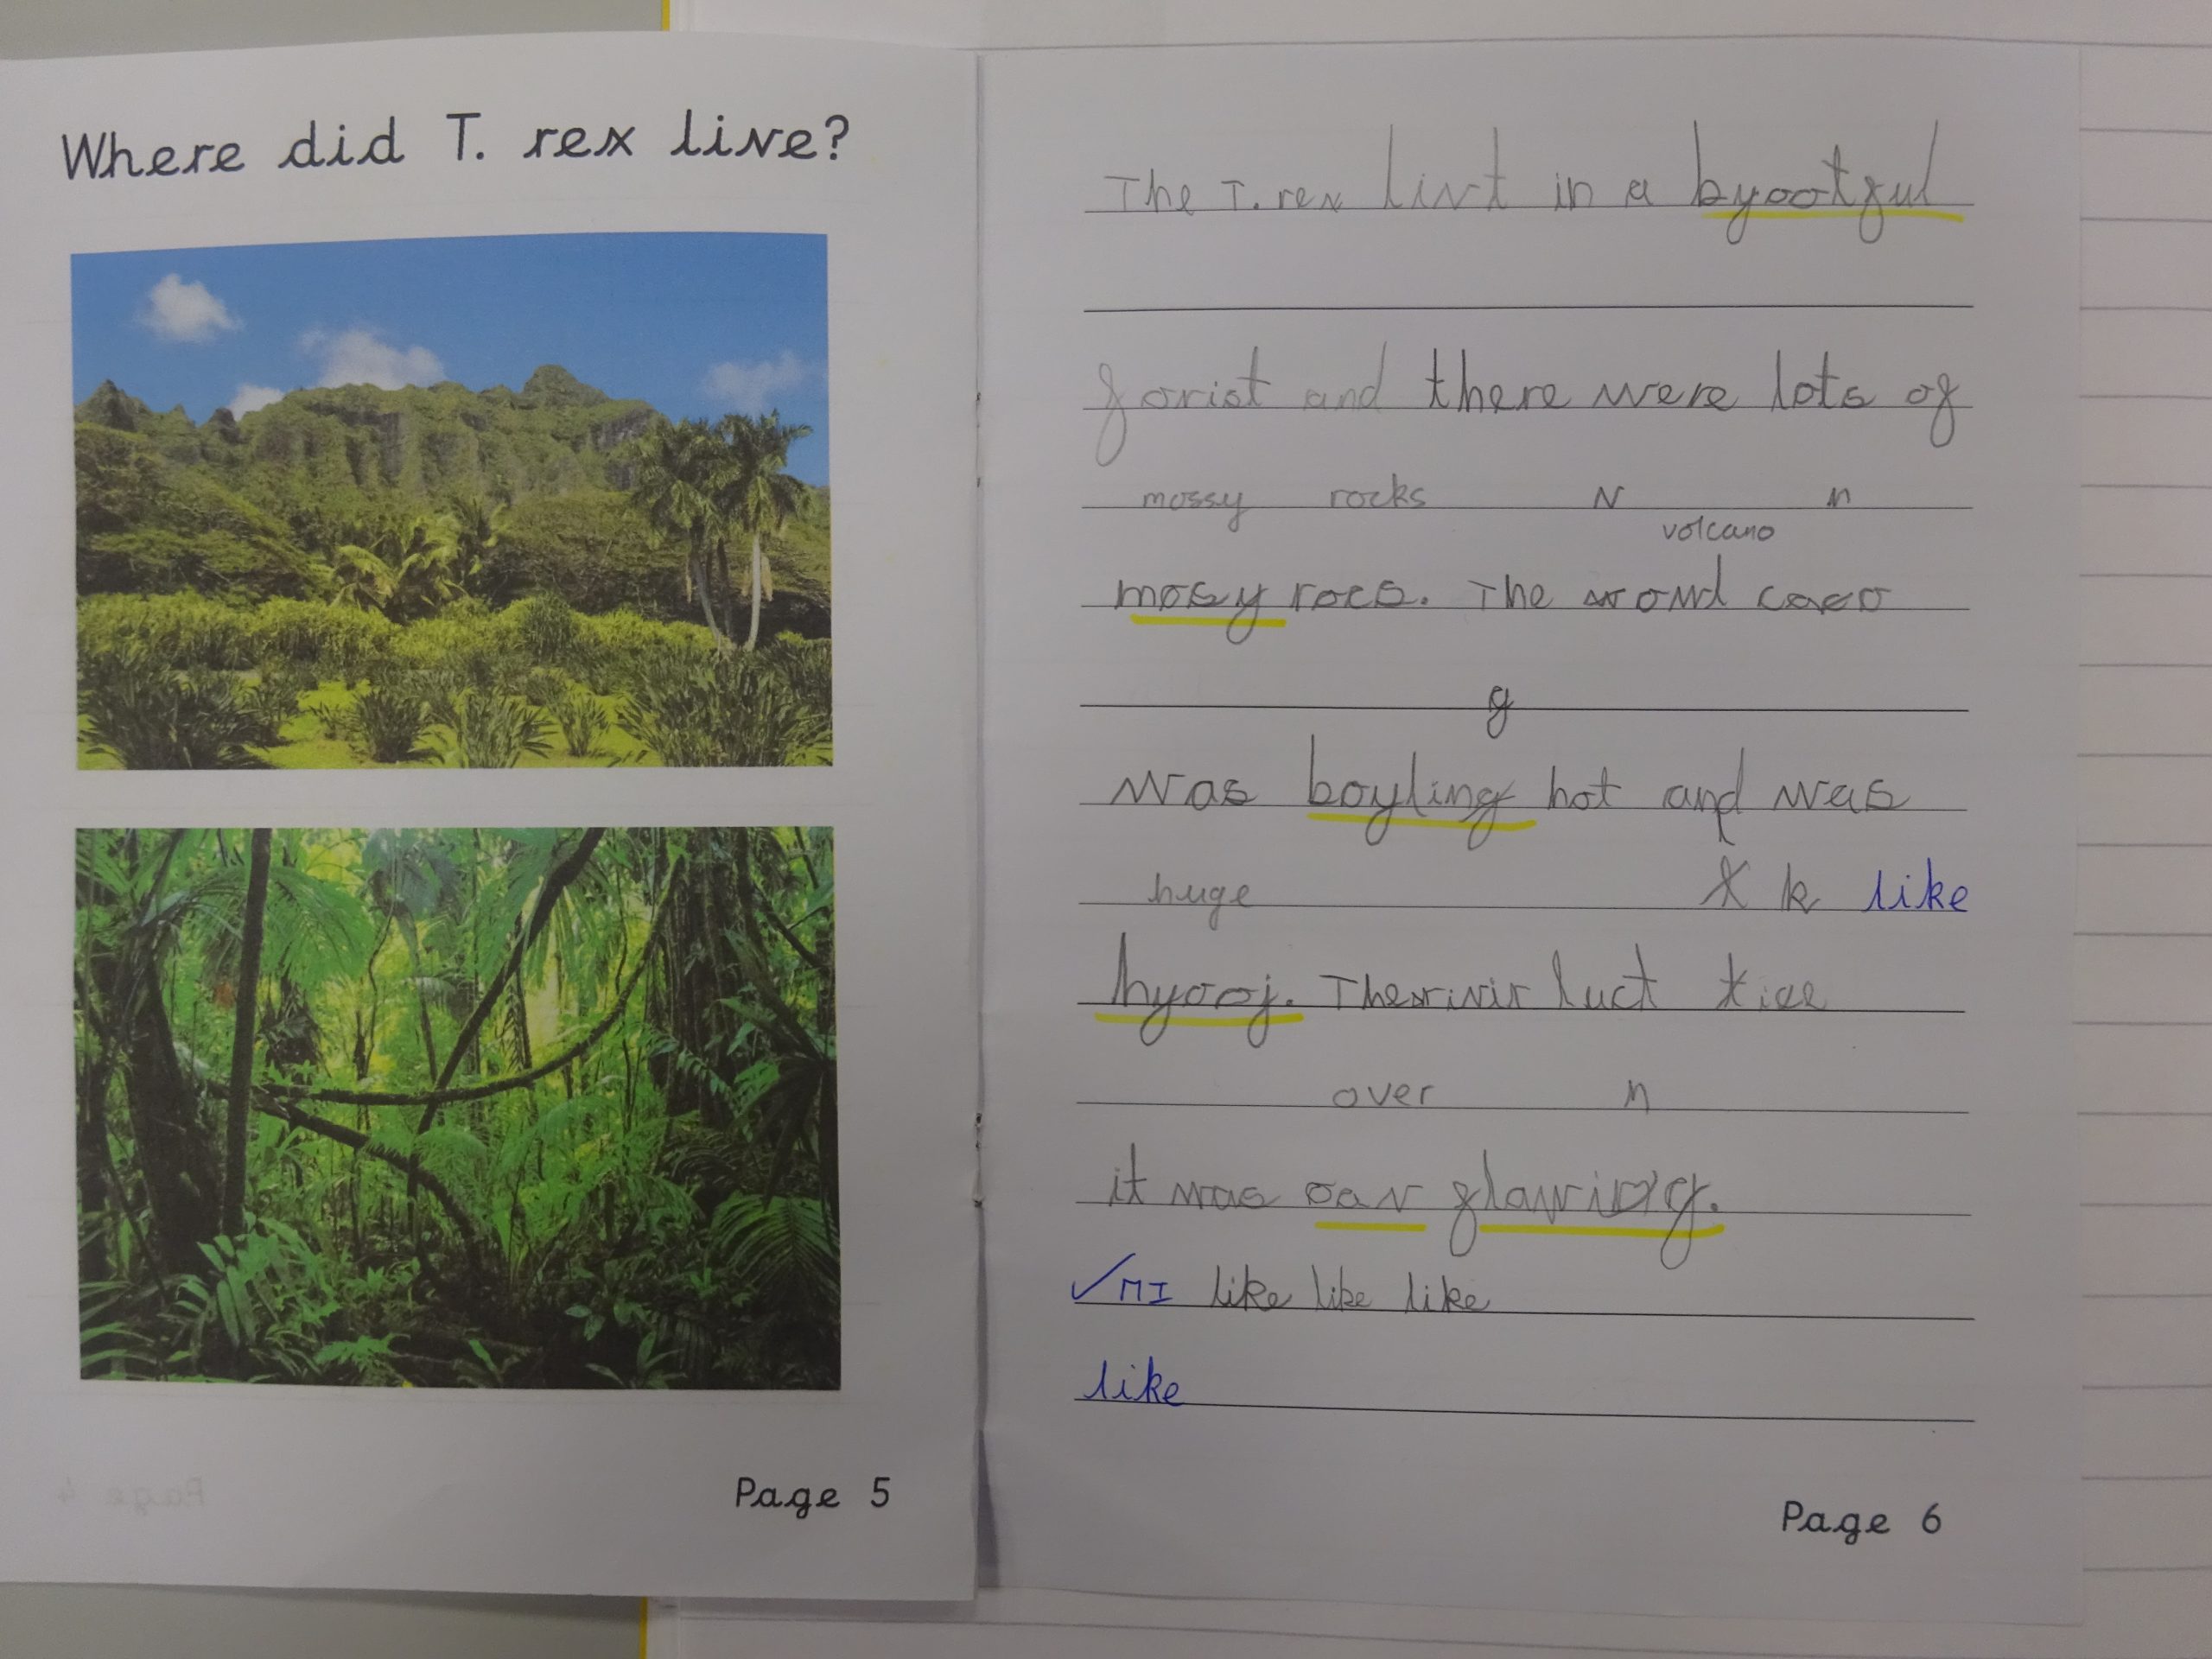 Where did T. rex live?
Page 5
Page 4
The T. rex livt in a byootful
forist and there were lots of
mossy rocks v n
volcano
mosy rocs. The
g
was boyling hot and was
huge k like
hyooj. The rivir luct
over n
it was oav flawing.
✓ MI like like like
like
Page 6